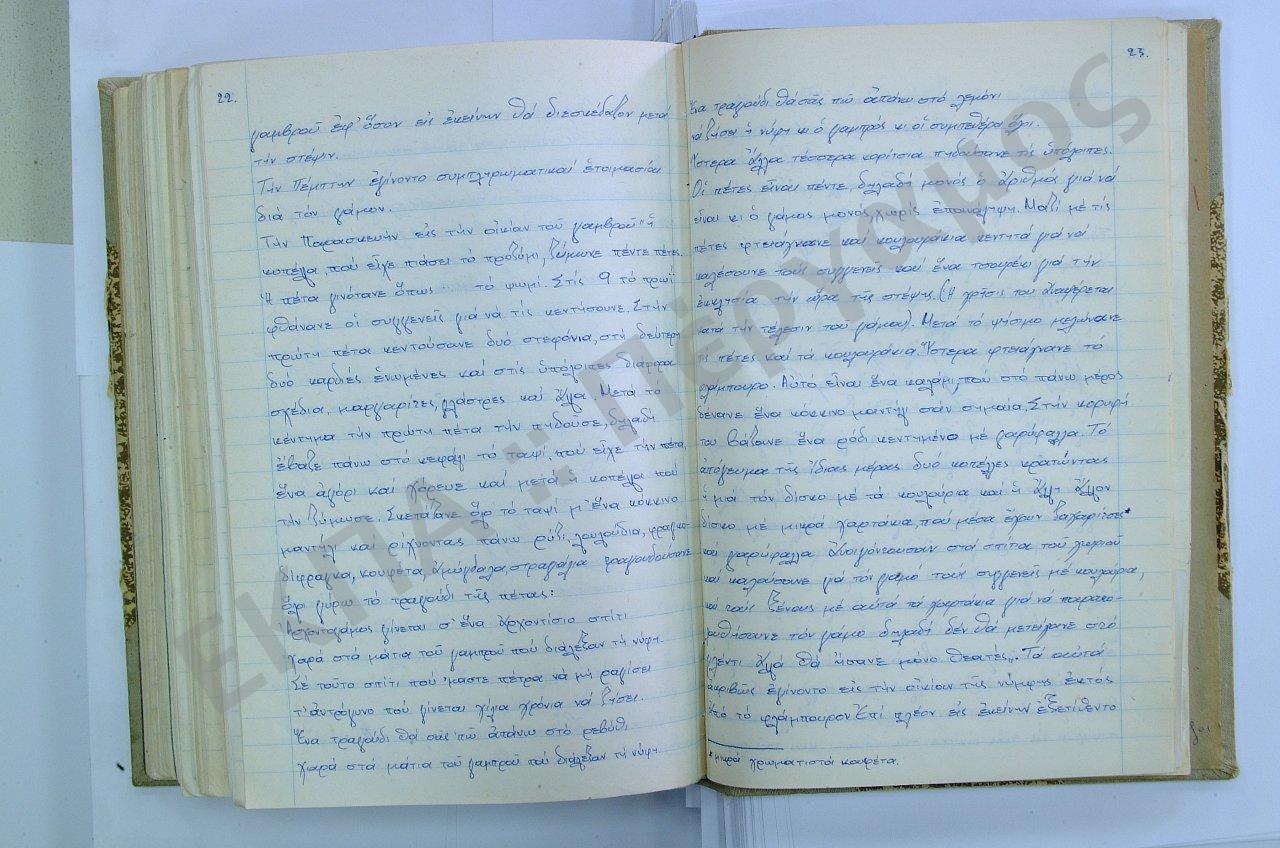 22.
γαμβροῦ ἐφ' ὅσον εἰς ἐκείνην θά διεσκέδαζον μετά
τήν στέψιν.
Τήν Πέμπτην ἐγίνοντο συμπληρωματικαί ἑτοιμασίαι
διά τόν γάμον.
Τήν Παρασκευήν εἰς τήν οἰκίαν τοῦ γαμβροῦ "ἡ
κοπέλλα πού εἶχε πιάσει τό προζύμι, ζύμωνε πέντε πέτες.
Ἡ πέτα γινότανε ὅπως τό ψωμί. Στίς 9 τό πρωΐ
φθάνανε οἱ συγγενεῖς γιά νά τίς κεντήσουνε. Στήν
πρώτη πέτα κεντούσανε δυό στεφάνια, στή δεύτερη
δυό καρδιές ἑνωμένες καί στίς ὑπόλοιπες διάφορα
σχέδια, μαργαρίτες, γλάστρες καί ἄλλα. Μετά τό
κέντημα τήν πρώτη πέτα τήν πηδοῦσε, δηλαδή
ἔβαζε πάνω στό κεφάλι τό ταψί, πού εἶχε τήν πέτα,
ἕνα ἀγόρι καί χόρευε καί μετά ἡ κοπέλλα πού
τήν ζύμωσε. Σκεπάζανε ὅλο τό ταψί μ' ἕνα κόκκινο
μαντήλι καί ρίχνοντας πάνω ρύζι, λουλούδια, φραγκο-
δίφραγκα, κουφέτα, ἀμύγδαλα, στραγάλια τραγουδούσανε
ὅλοι γύρω τό τραγούδι τῆς πέτας:
Ἀρχοντόγαμος γίνεται σ' ἕνα ἀρχοντίσιο σπίτι
χαρά στά μάτια τοῦ γαμπροῦ πού διάλεξαν τή νύφη.
Σέ τοῦτο σπίτι πού 'μαστε πέτρα νά μή ραγίσει
τ' ἀντρόγυνο πού γίνεται χίλια χρόνια νά ζήσει.
Ἕνα τραγούδι θά σᾶς πῶ ἀπάνω στό ρεβύθι
χαρά στά μάτια τοῦ γαμπροῦ πού διάλεξαν τή νύφη.
23.
Ἕνα τραγούδι θά σᾶς πῶ ἀπάνω στό λεμόνι
νά ζήσει ἡ νύφη κι ὁ γαμπρός κι οἱ συμπεθέροι ὅλοι.
Ὕστερα ἄλλα τέσσερα κορίτσια πηδούσανε τίς ὑπόλοιπες.
Οἱ πέτες εἶναι πέντε, δηλαδή μονός ὁ ἀριθμός γιά νά
εἶναι κι ὁ γάμος μονός, χωρίς ἐπανάληψη. Μαζί μέ τίς
πέτες φτειάχνανε καί κουλουράκια κεντητά γιά νά
καλέσουνε τούς συγγενεῖς καί ἕνα τσουρέκι γιά τήν
ἐκκλησία τήν ὥρα τῆς στέψης. (Ἡ χρῆσις του ἀναφέρεται
κατά τήν τέλεσιν τοῦ γάμου). Μετά τό ψήσιμο μελώνανε
τίς πέτες καί τά κουλουράκια. Ὕστερα φτειάχνανε τό
φλάμπουρο. Αὐτό εἶναι ἕνα καλάμι, πού στό πάνω μέρος
δένανε ἕνα κόκκινο μαντήλι σάν σημαία. Στήν κορυφή
του βάζουνε ἕνα ρόδι κεντημένο μέ γαρύφαλλα. Τό
ἀπόγευμα τῆς ἴδιας μέρας δυό κοπέλλες κρατώντας
ἡ μιά τόν δίσκο μέ τά κουλούρια καί ἡ ἄλλη ἄλλον
δίσκο μέ μικρά χαρτάκια, πού μέσα ἔχουν ζαχαρίτσες*
καί γαρύφαλλα στά σπίτια τοῦ χωριοῦ
καί καλούσανε γιά τόν γάμο τούς συγγενεῖς μέ κουλούρια,
καί τούς ξένους μέ αὐτά τά χαρτάκια γιά νά παρακο-
λουθήσουνε τόν γάμο δηλαδή δέν θά μετείχανε στό
γλέντι ἀλλά θά ἤσανε μόνο θεατές„. Τά αὐτά
ἀκριβῶς ἐγίνοντο εἰς τήν οἰκίαν τῆς νύμφης ἐκτός
ἀπό τό φλάμπουρον. Ἐπί πλέον εἰς ἐκείνην ἐξετίθεντο
* μικρά χρωματιστά κουφέτα.
ΕΚΠΑ :: ΠΕΡΓΑΜΟΣ